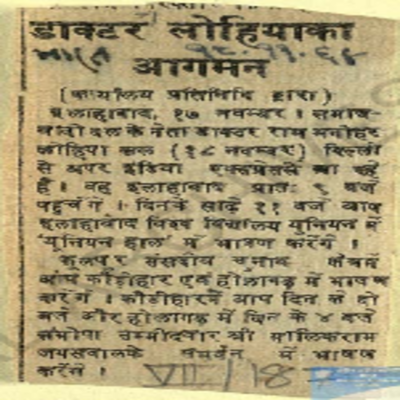 डाक्टर लोहियाका
भारत १८.११.६४
आगमन
(कार्यालय प्रतिनिधि द्वारा)
इलाहाबाद, १७ नवम्बर । समाज-
वादी दल के नेता डाक्टर राम मनोहर
लोहिया कल (१८ नवम्बर) दिल्ली
से अपर इंडिया एक्सप्रेससे आ रहे
हैं । वह इलाहाबाद प्रातः ९ बजे
पहुचेंगे । दिनके साढ़े ११ बजे आप
इलाहाबाद विश्व विद्यालय यूनियन में
'यूनियन हाल' में भाषण करेंगे ।
फूलपुर संसदीय चुनाव क्षेत्रमें
आप कौड़ीहार एवं होलागढ़ में भाषण
करेंगे । कौडीहारमें आप दिन के दो
बजे और होलागढ़ में दिन के ४ बजे
संसोपा उम्मीदवार श्री सालिकराम
जायसवालके समर्थन में भाषण
करेंगे ।
VII/18